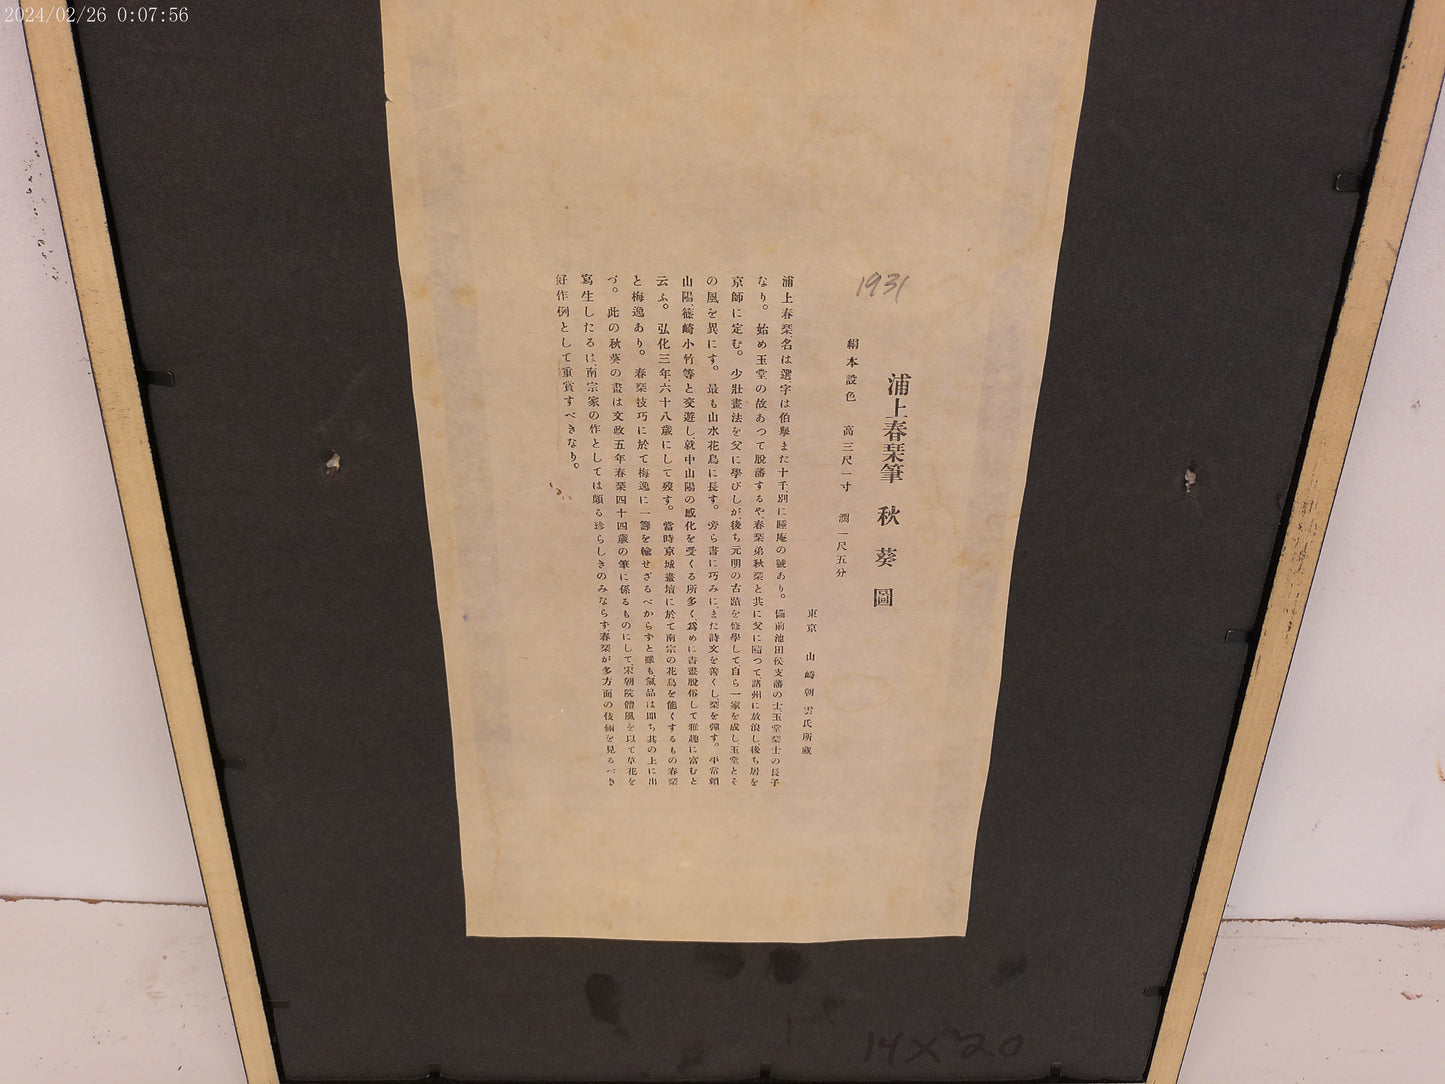 2024/02/26 0:07:56
1931
浦上春琹筆 秋葵圖
絹本設色 高三尺一寸 濶一尺五分
東京 山崎朝雲氏所藏
浦上春琹、名は選、字は伯擧また十千、別に睡庵の號あり。備前池田侯支藩の士玉堂琹士の長子
なり。始め玉堂の故あつて脫藩するや春琹弟秋琹と共に父に隨つて諸州に放浪し後ち居を
京師に定む。少壯畫法を父に學びしが、後ち元明の古蹟を修學して自ら一家を成し玉堂とそ
の風を異にす。最も山水花鳥に長す。旁ら書に巧みに、また詩文を善くし、琹を彈す。平常賴
山陽、篠崎小竹等と交遊し、就中山陽の感化を受くる所多く、爲めに書畫脫俗して雅趣に富むと
云ふ。弘化三年、六十八歲にして歿す。當時京城畫壇に於て南宗の花鳥を能くするもの春琹
と梅逸あり。春琹技巧に於て梅逸に一籌を輸せざるべからずと雖も氣品は卽ち其の上に出
づ。此の秋葵の畫は文政五年春琹四十四歲の筆に係るものにして、宋朝院體風を以て草花を
寫生したるは、南宗家の作としては頗る珍らしきのみならず春琹が多方面の伎倆を見るべき
好作例として重賞すべきなり。
14X20